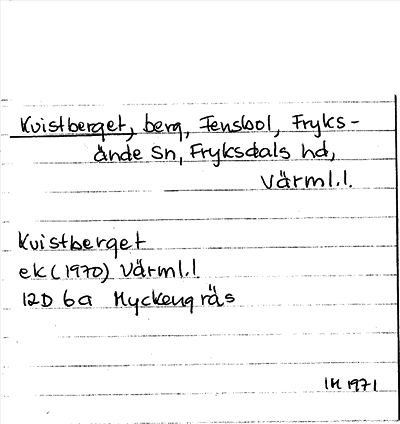 Kvistberget, berg, Fensbol, Fryks-
ände Sn, Fryksdals hd,
Värml.l.
Kvistberget
ek (1970) Värml.l
12D 6a Myckengräs
IH 1971